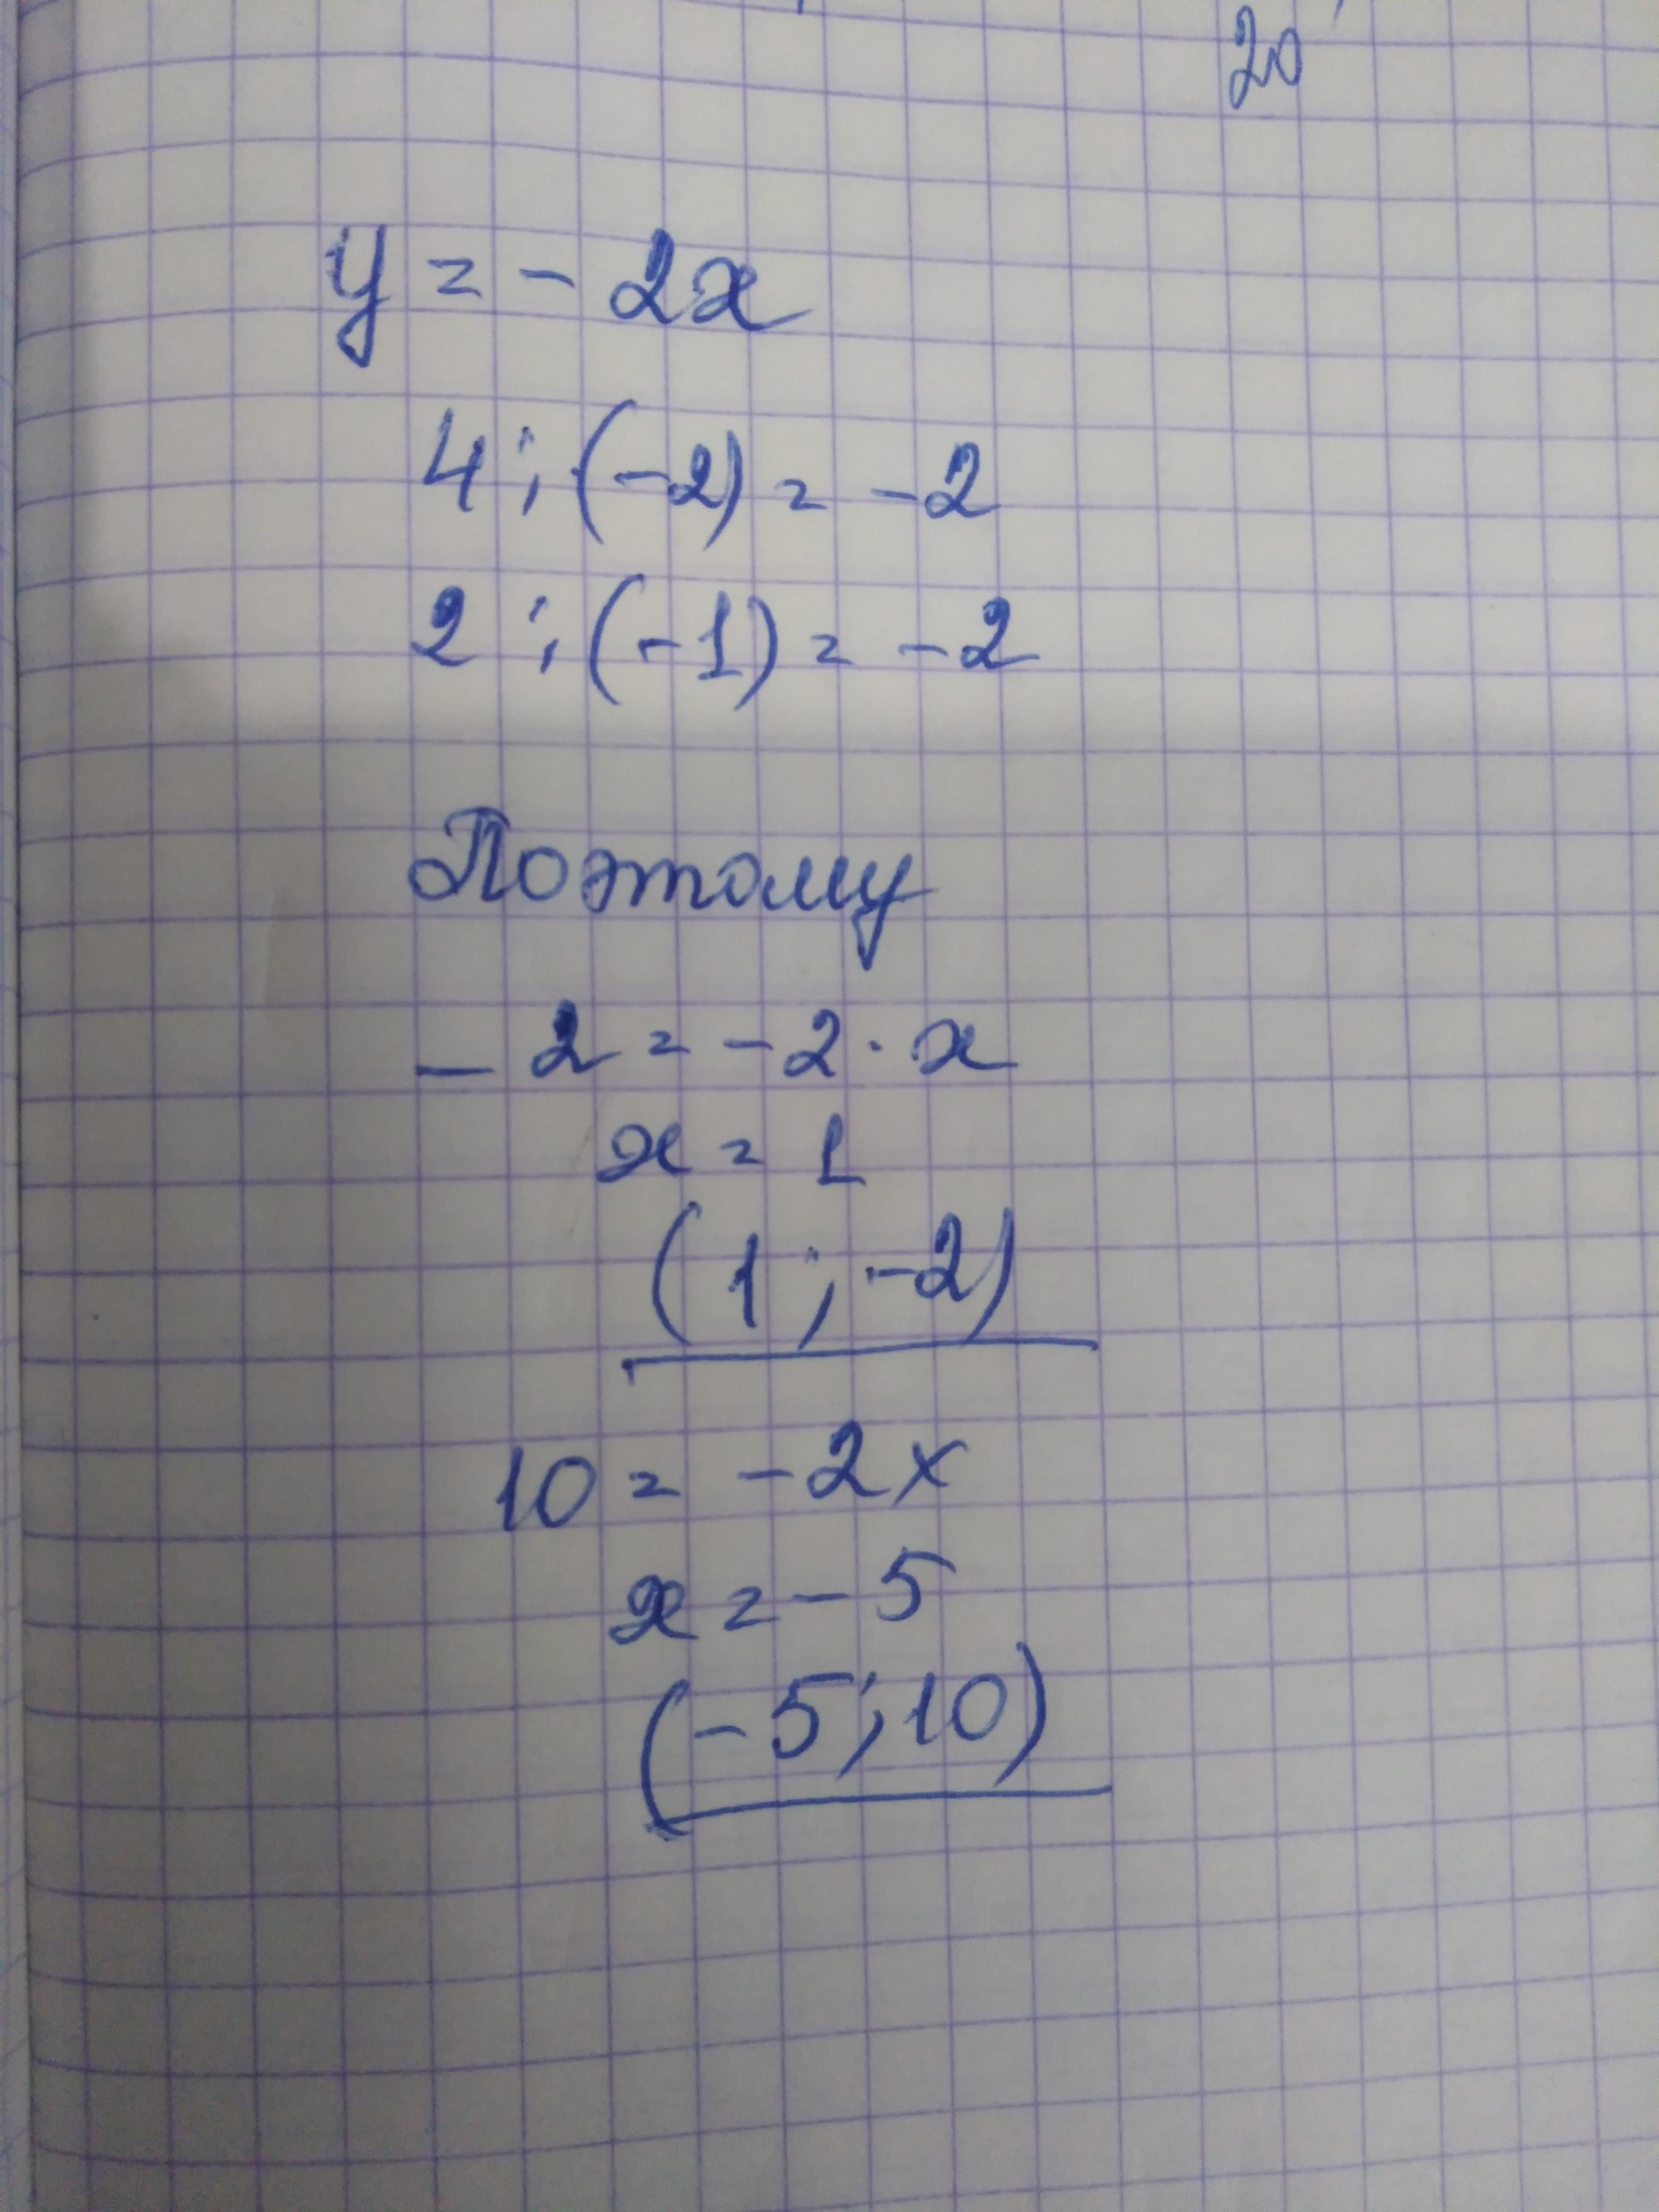 20
y = - 2x
4 ; (-2) = -2
2 ; (-1) = -2
Поэтому
- 2 = -2 · x
x = 1
(1 ; -2)
10 = -2x
x = - 5
(-5 ; 10)